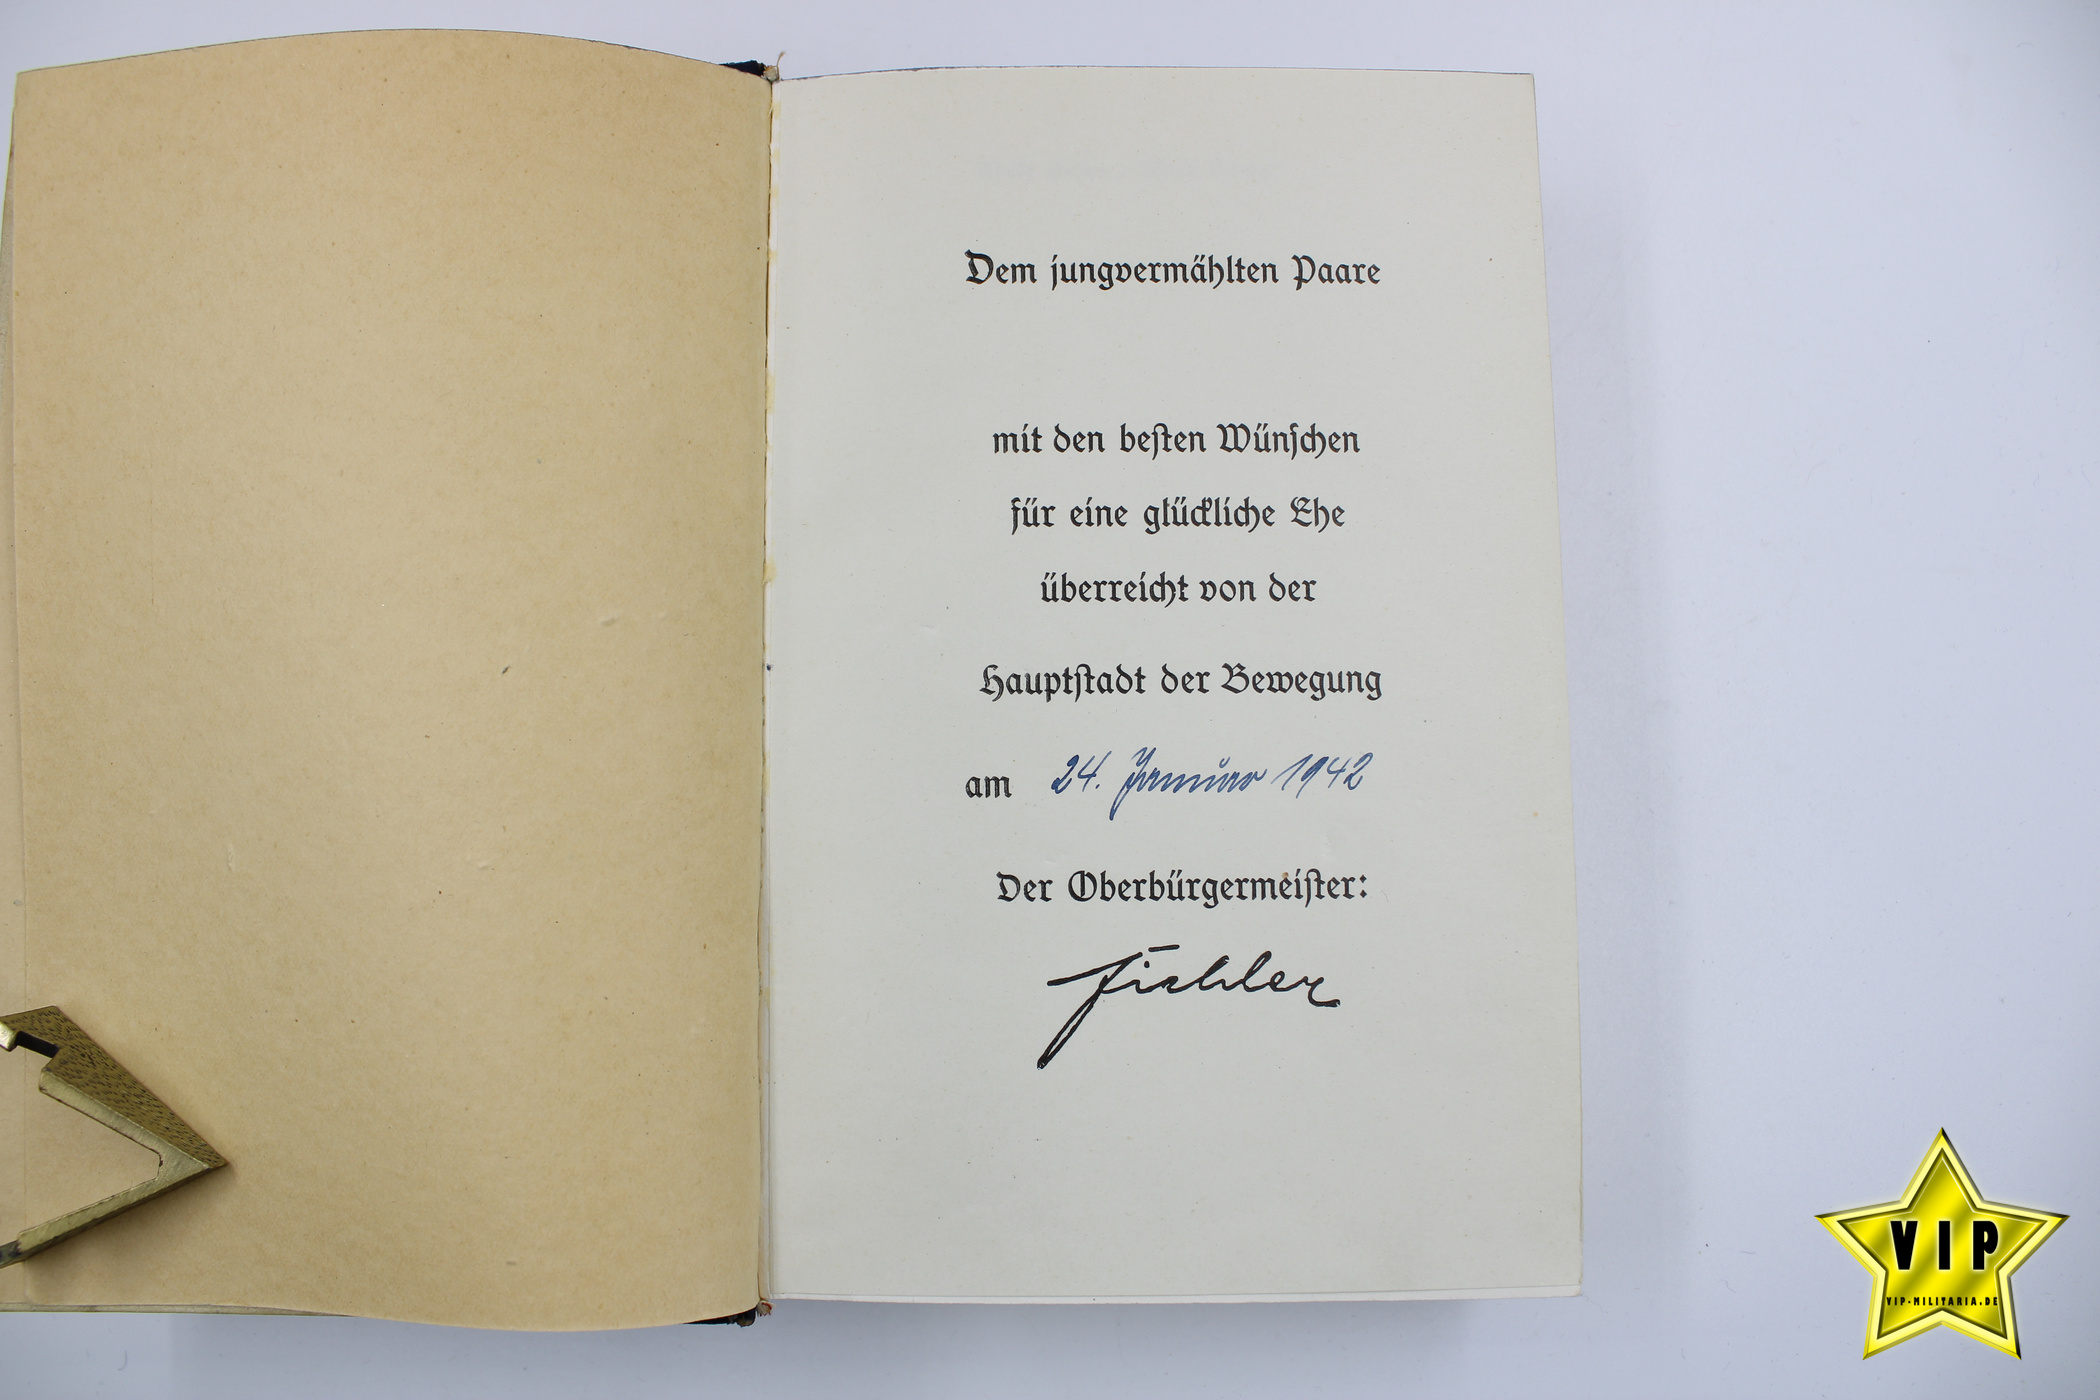 Dem jungvermählten Paare
mit den besten Wünschen
für eine glückliche Ehe
überreicht von der
Hauptstadt der Bewegung
am 24. Januar 1942
Der Oberbürgermeister:
Fiehler
VIP
VIP-MILITARIA.DE